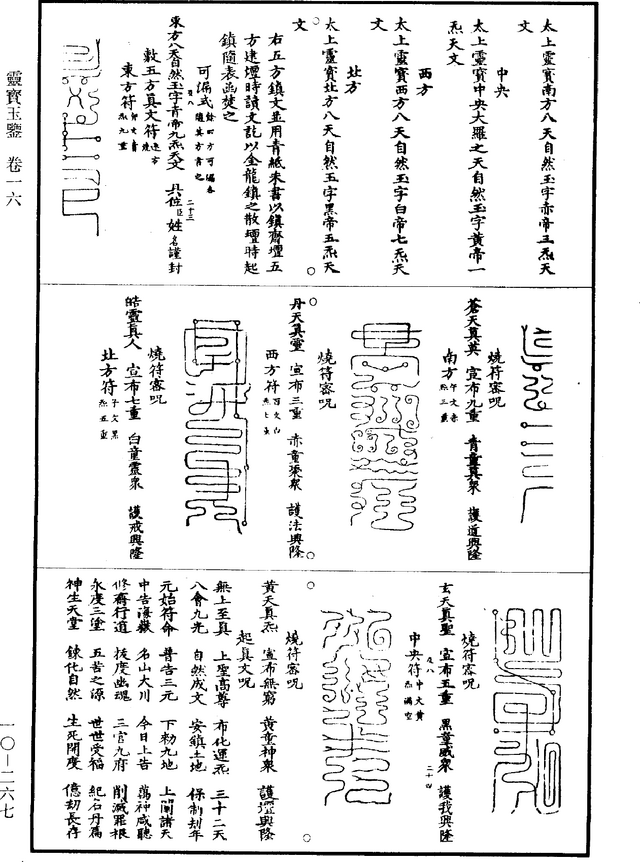 太上靈寳南方八天自然玉字赤帝三炁天
文
中央
太上靈寳中央大羅之天自然玉字黃帝一
炁天文
西方
太上靈寳西方八天自然玉字白帝七炁天
文
北方
太上靈寳北方八天自然玉字黑帝五炁天
文
右五方鎮文並用青紙朱書以鎮齋壇五
方建壇時讀文訖以金龍鎮之散壇時起
鎮隨表函焚之
可漏式
東方八天自然玉字青帝九炁天文 具位臣姓名謹封
二十三
敷五方真文符
東方符
燒符密呪
蒼天真英 宣布九重 青童真衆 護道興隆
南方符
燒符密呪
丹天真靈 宣布三重 赤童衆 護法興隆
西方符
燒符密呪
皓靈真人 宣布七重 白童靈衆 護戒興隆
北方符
燒符密呪
玄天真聖 宣布五重 黑童威衆 護我興隆
中央符
二十四
燒符密呪
黃天真炁 宣布無窮 黃童神衆 護壇興隆
起真文呪
無上至真 上聖高尊 布化運炁 三十二天
八會九光 自然成文 安鎮土地 保制刼年
元始符命 普告三元 下勑九地 上聞諸天
中告海嶽 名山大川 今日上告 萬神咸聽
修齋行道 拔度幽魂 三官九府 削滅罪根
永度三塗 五苦之源 世世受福 紀名丹篇
神生天堂 鍊化自然 生死開度 億劫長存
靈寶玉鑒 卷一六
一〇—二六七